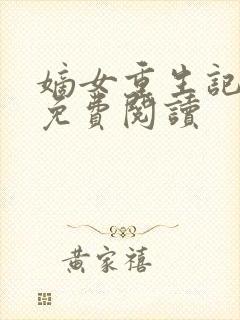 嫡女重生記
免費閱讀
黃家禧